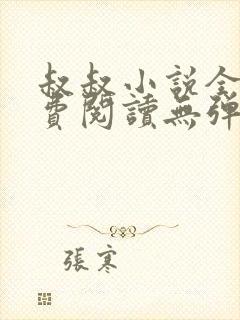 叔叔小說全
費閱讀無彈
張寒